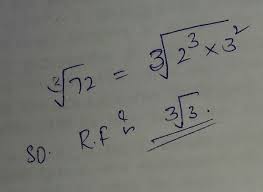 ∛72 = ∛(2³ × 3²)
SO. R.F is ∛3.